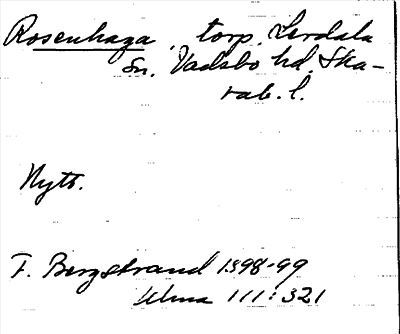 Rosenhaga, torp. Lerdala
Sn. Vadsbo hd. Ska-
rab. l.
Nytt.
F. Bergstrand 1898-99
111:321